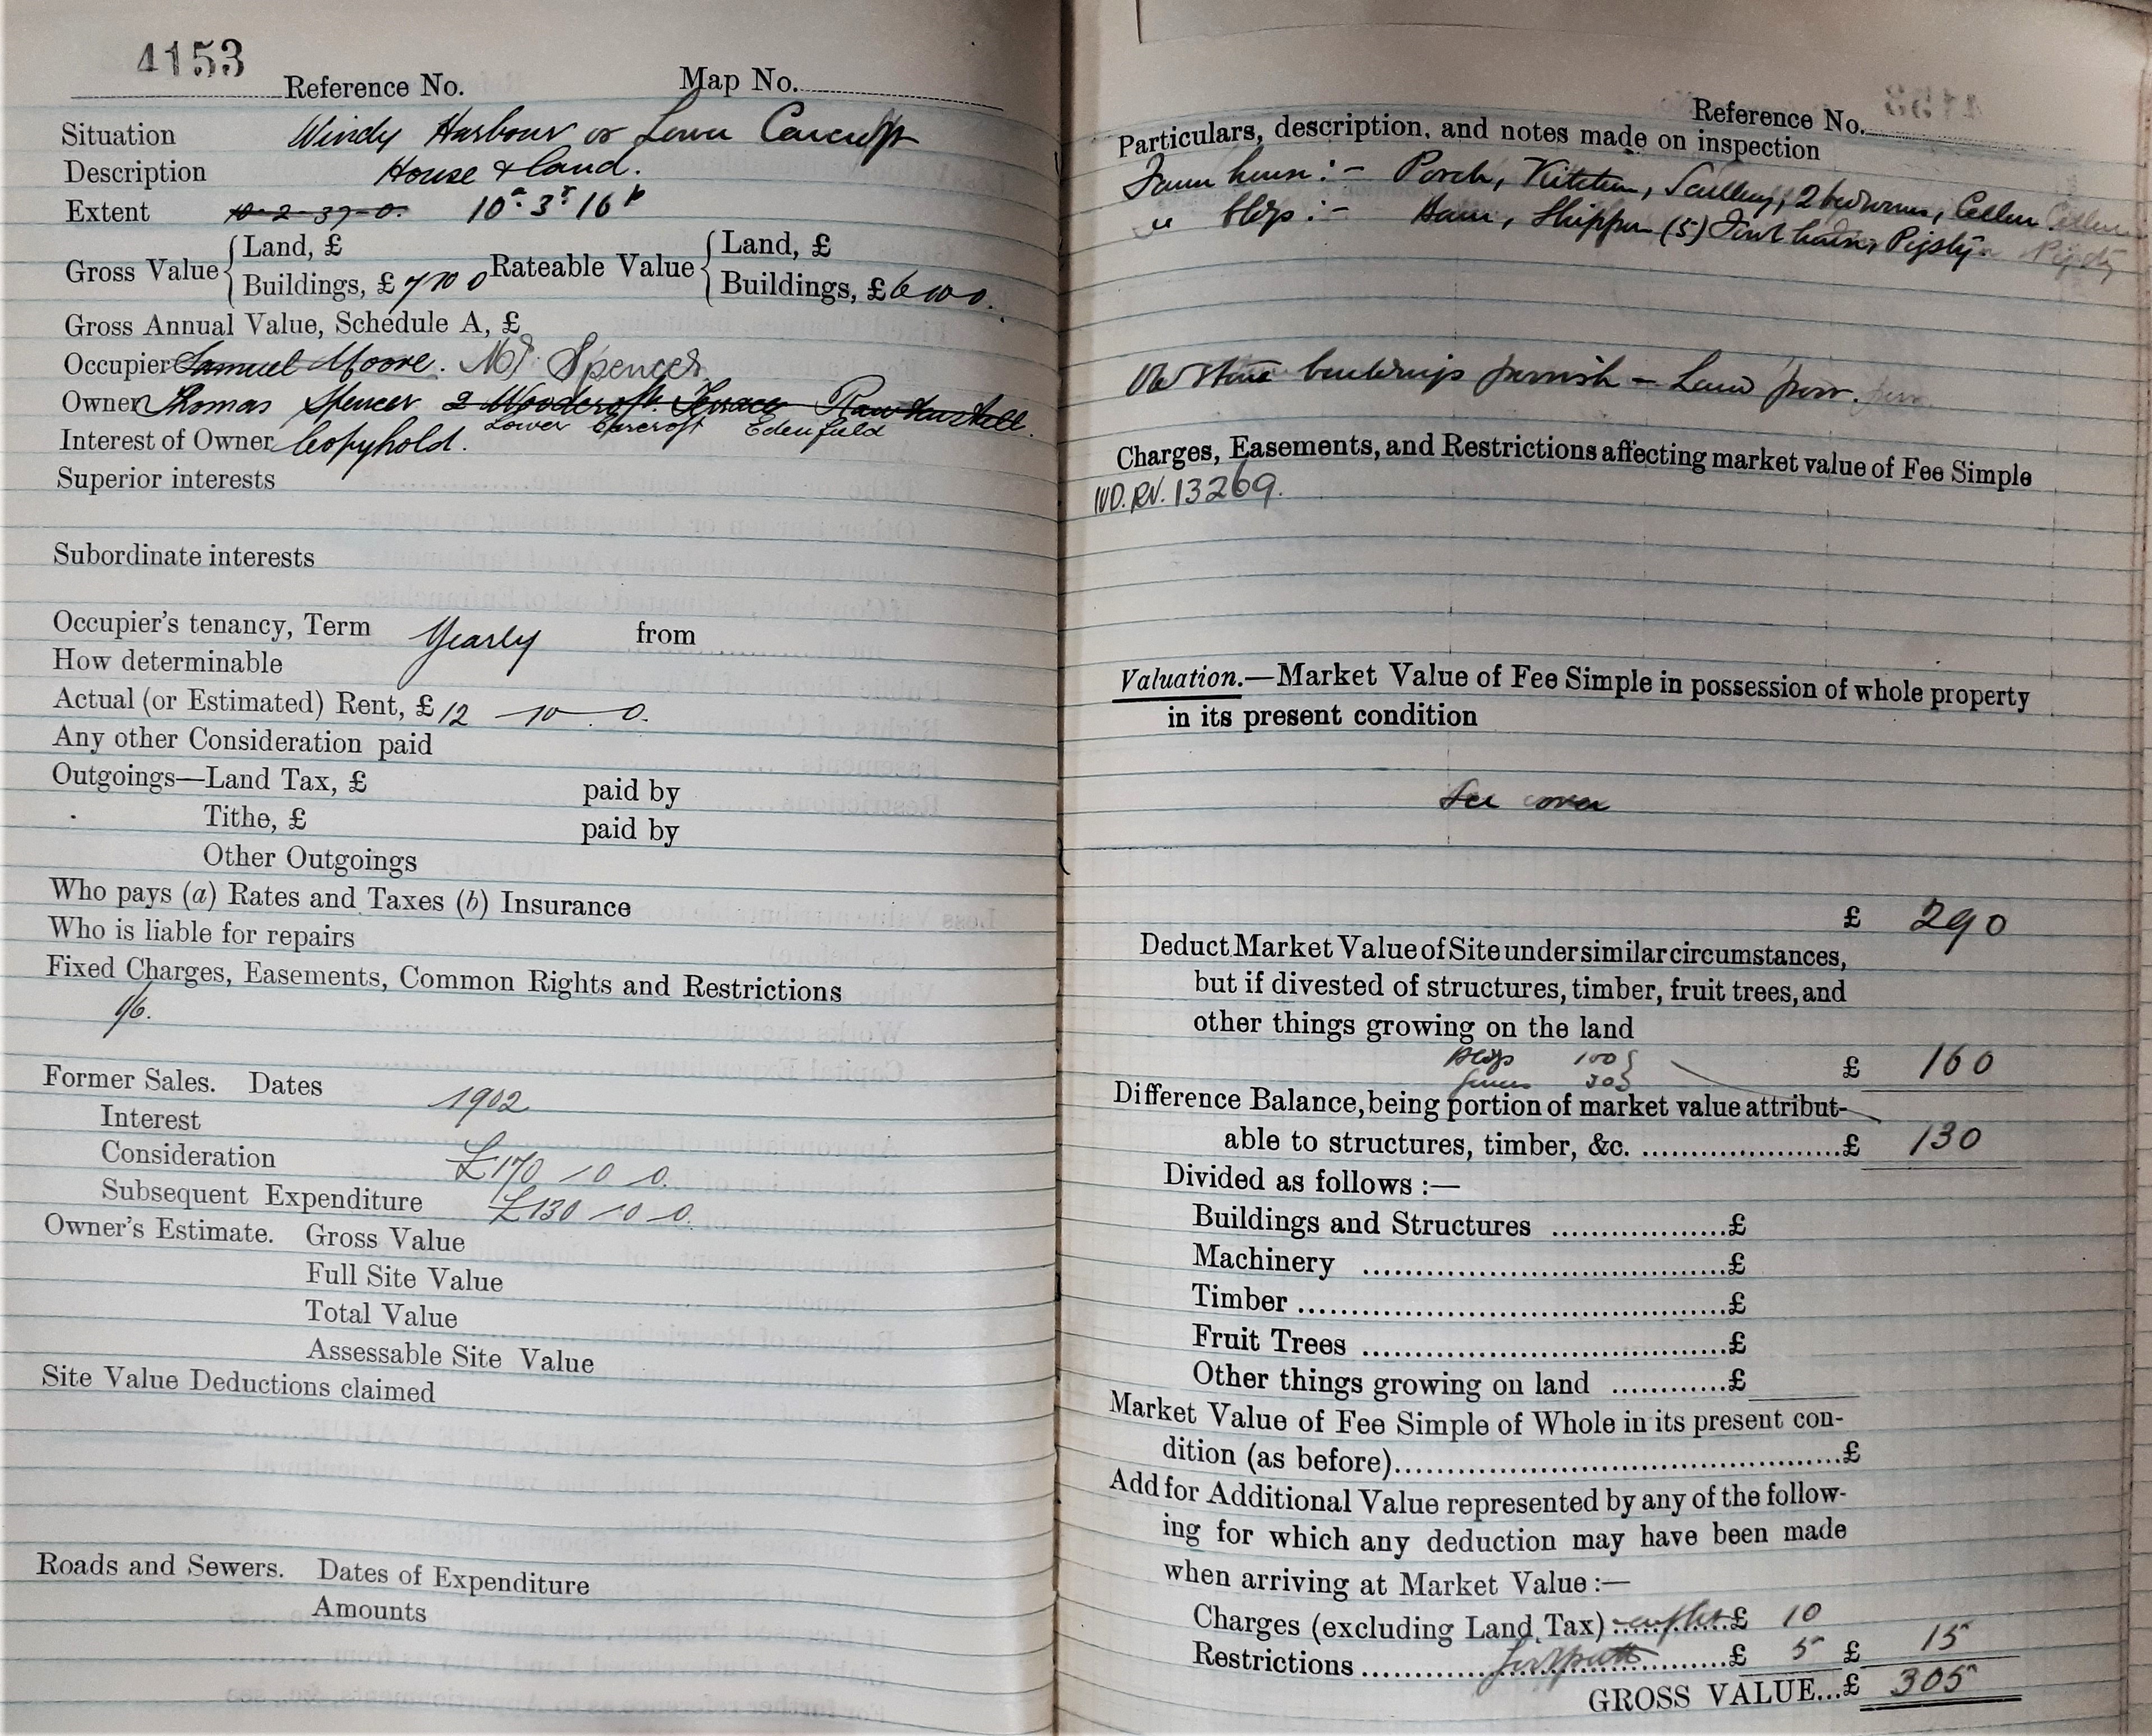 4153
Reference No. Map No.
Situation Windy Harbour or Lower
Description House & Land.
Extent 10-2-37-0. 10ᵃ 3ʳ 16ᵖ
Gross Value { Land, £ Rateable Value { Land, £
Buildings, £7 10 0 Buildings, £6 10 0.
Gross Annual Value, Schedule A, £
Occupier Samuel Moore. Mr Spencer
Owner Thomas Spencer 2 Woodcroft Terrace Rawtenstall.
Lower Carcroft Edenfield
Interest of Owner Copyhold.
Superior interests
Subordinate interests
Occupier's tenancy, Term Yearly from
How determinable
Actual (or Estimated) Rent, £12 - 10 - 0.
Any other Consideration paid
Outgoings—Land Tax, £ paid by
Tithe, £ paid by
Other Outgoings
Who pays (a) Rates and Taxes (b) Insurance
Who is liable for repairs
Fixed Charges, Easements, Common Rights and Restrictions
1/6.
Former Sales. Dates 1902
Interest
Consideration £170 - 0 - 0.
Subsequent Expenditure £130 - 0 - 0.
Owner's Estimate. Gross Value
Full Site Value
Total Value
Assessable Site Value
Site Value Deductions claimed
Roads and Sewers. Dates of Expenditure
Amounts
Reference No.
Particulars, description, and notes made on inspection
Farm house :- Porch, Kitchen, Scullery, 2 bedrooms, Cellar
" bldgs :- Barn, Shippon (5) Pigsty
Old Stone buildings fairish - Land poor.
Charges, Easements, and Restrictions affecting market value of Fee Simple
WD. RV. 13269.
Valuation.—Market Value of Fee Simple in possession of whole property
in its present condition
See cover
£ 290
Deduct Market Value of Site under similar circumstances,
but if divested of structures, timber, fruit trees, and
other things growing on the land
Bldgs 100 } £ 160
fences 30 }
Difference Balance, being portion of market value attribut-
able to structures, timber, &c. ........£ 130
Divided as follows :—
Buildings and Structures ........£
Machinery ........£
Timber ........£
Fruit Trees ........£
Other things growing on land ........£
Market Value of Fee Simple of Whole in its present con-
dition (as before)........£
Add for Additional Value represented by any of the follow-
ing for which any deduction may have been made
when arriving at Market Value :—
Charges (excluding Land Tax) £ 10
Restrictions ........£ 5 £ 15
GROSS VALUE...£ 305